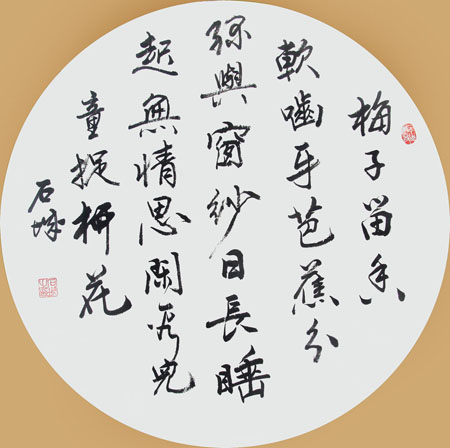 梅子畱香
軟嚙牙芭蕉分
綠與窗紗日長睡
起無情思閑看兒
童捉柳花
石城